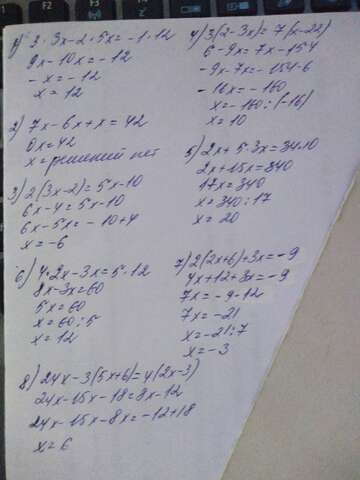 1) 3 · 3x - 2 · 5x = -1 · 12
9x - 10x = -12
-x = -12
x = 12
2) 7x - 6x + x = 42
0x = 42
x = решений нет
3) 2(3x-2) = 5x-10
6x - 4 = 5x - 10
6x - 5x = -10+4
x = -6
6) 4·2x - 3x = 5·12
8x - 3x = 60
5x = 60
x = 60 : 5
x = 12
8) 24x - 3(5x+6) = 4(2x-3)
24x - 15x - 18 = 8x - 12
24x - 15x - 8x = -12+18
x = 6
4) 3(2-3x) = 7(x-22)
6 - 9x = 7x - 154
-9x - 7x = -154-6
-16x = -160
x = -160 : (-16)
x = 10
5) 2x + 5·3x = 34·10
2x + 15x = 340
17x = 340
x = 340 : 17
x = 20
7) 2(2x+6)+3x = -9
4x + 12 + 3x = -9
7x = -9-12
7x = -21
x = -21 : 7
x = -3